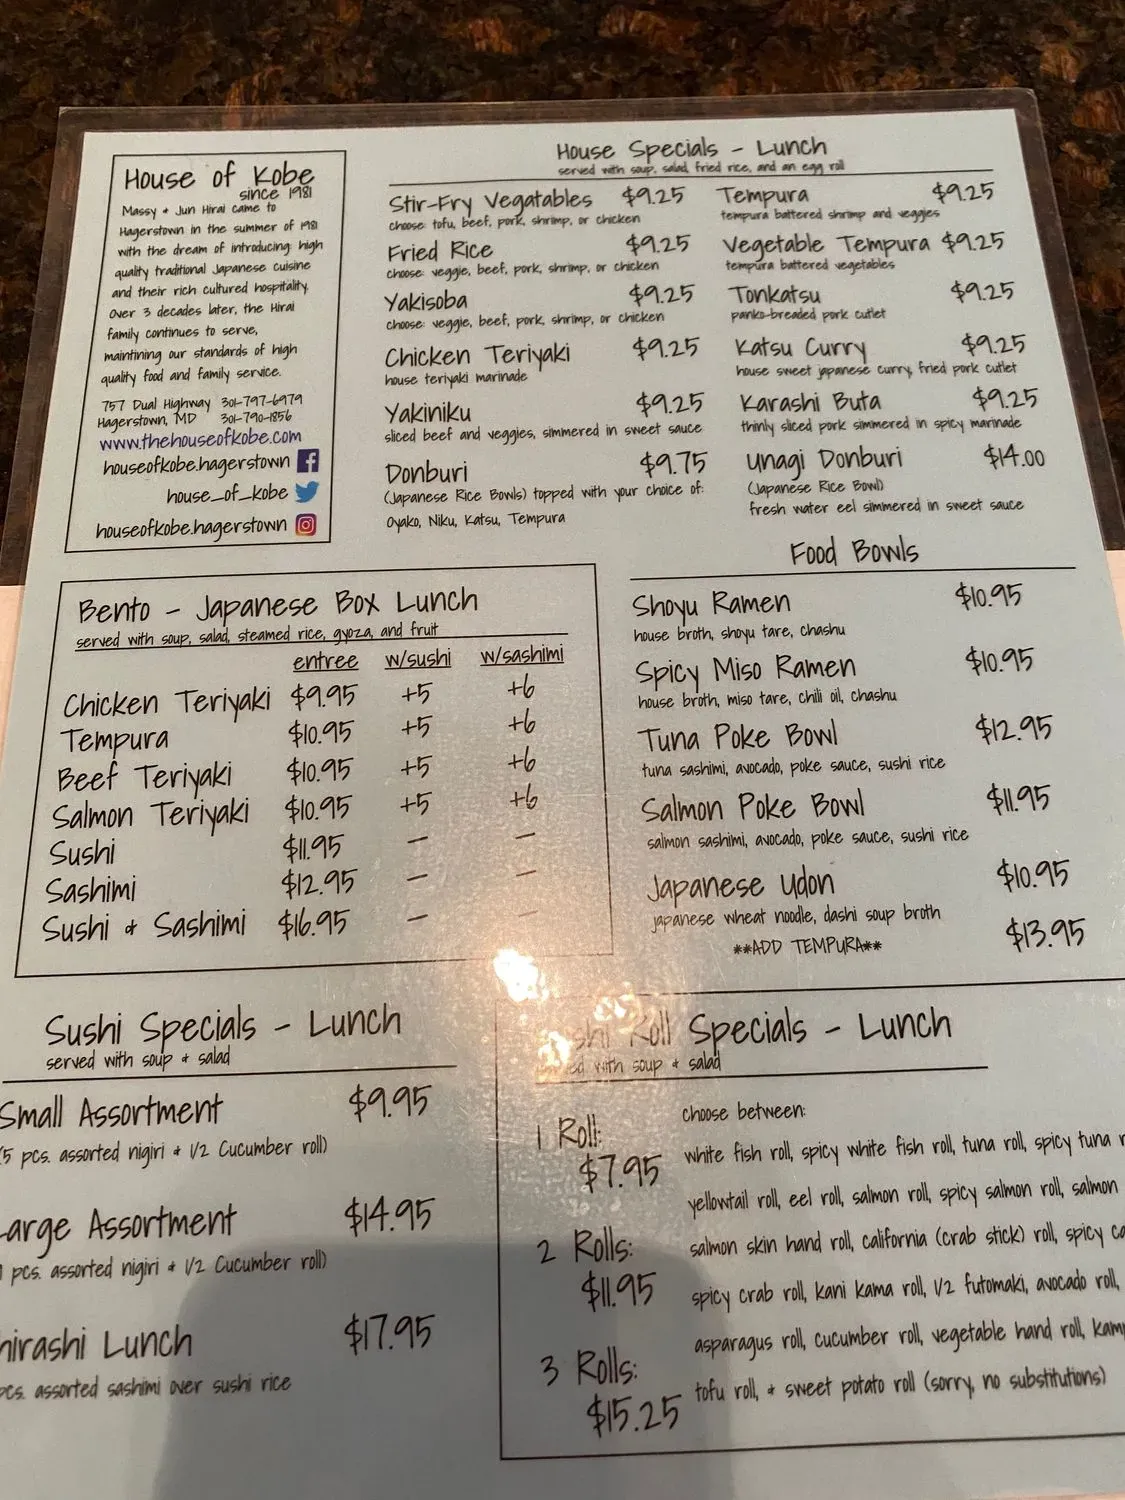 House of Kobe
since 1981
Massy & Jun Hirai came to
Hagerstown in the summer of 1981
with the dream of introducing high
quality traditional Japanese cuisine
and their rich cultured hospitality.
Over 3 decades later, the Hirai
family continues to serve,
maintining our standards of high
quality food and family service.
757 Dual Highway 301-797-6979
Hagerstown, MD 301-790-1856
www.thehouseofkobe.com
houseofkobe.hagerstown
house_of_kobe
houseofkobe.hagerstown
House Specials - Lunch
served with soup, salad, fried rice, and an egg roll
Stir-Fry Vegatables $9.25
choose: tofu, beef, pork, shrimp, or chicken
Fried Rice $9.25
choose: veggie, beef, pork, shrimp, or chicken
Yakisoba $9.25
choose: veggie, beef, pork, shrimp, or chicken
Chicken Teriyaki $9.25
house teriyaki marinade
Yakiniku $9.25
sliced beef and veggies, simmered in sweet sauce
Donburi $9.75
(Japanese Rice Bowls) topped with your choice of:
Oyako, Niku, Katsu, Tempura
Tempura $9.25
tempura battered shrimp and veggies
Vegetable Tempura $9.25
tempura battered vegetables
Tonkatsu $9.25
panko-breaded pork cutlet
Katsu Curry $9.25
house sweet japanese curry, fried pork cutlet
Karashi Buta $9.25
thinly sliced pork simmered in spicy marinade
Unagi Donburi $14.00
(Japanese Rice Bowl)
fresh water eel simmered in sweet sauce
Bento - Japanese Box Lunch
served with soup, salad, steamed rice, gyoza, and fruit
entree w/sushi w/sashimi
Chicken Teriyaki $9.95 +5 +6
Tempura $10.95 +5 +6
Beef Teriyaki $10.95 +5 +6
Salmon Teriyaki $10.95 +5 +6
Sushi $11.95 - -
Sashimi $12.95 - -
Sushi & Sashimi $16.95 - -
Food Bowls
Shoyu Ramen $10.95
house broth, shoyu tare, chashu
Spicy Miso Ramen $10.95
house broth, miso tare, chili oil, chashu
Tuna Poke Bowl $12.95
tuna sashimi, avocado, poke sauce, sushi rice
Salmon Poke Bowl $11.95
salmon sashimi, avocado, poke sauce, sushi rice
Japanese Udon $10.95
japanese wheat noodle, dashi soup broth
**ADD TEMPURA** $13.95
Sushi Specials - Lunch
served with soup & salad
Small Assortment $9.95
(5 pcs. assorted nigiri & 1/2 Cucumber roll)
Large Assortment $14.95
pcs. assorted nigiri & 1/2 Cucumber roll)
hirashi Lunch $17.95
pcs. assorted sashimi over sushi rice
Roll Specials - Lunch
with soup & salad
1 Roll:
$7.95
2 Rolls:
$11.95
3 Rolls:
$15.25
choose between:
white fish roll, spicy white fish roll, tuna roll, spicy tuna
yellowtail roll, eel roll, salmon roll, spicy salmon roll, salmon
salmon skin hand roll, california (crab stick) roll, spicy
spicy crab roll, kani kama roll, 1/2 futomaki, avocado roll,
asparagus roll, cucumber roll, vegetable hand roll,
tofu roll, & sweet potato roll (sorry, no substitutions)